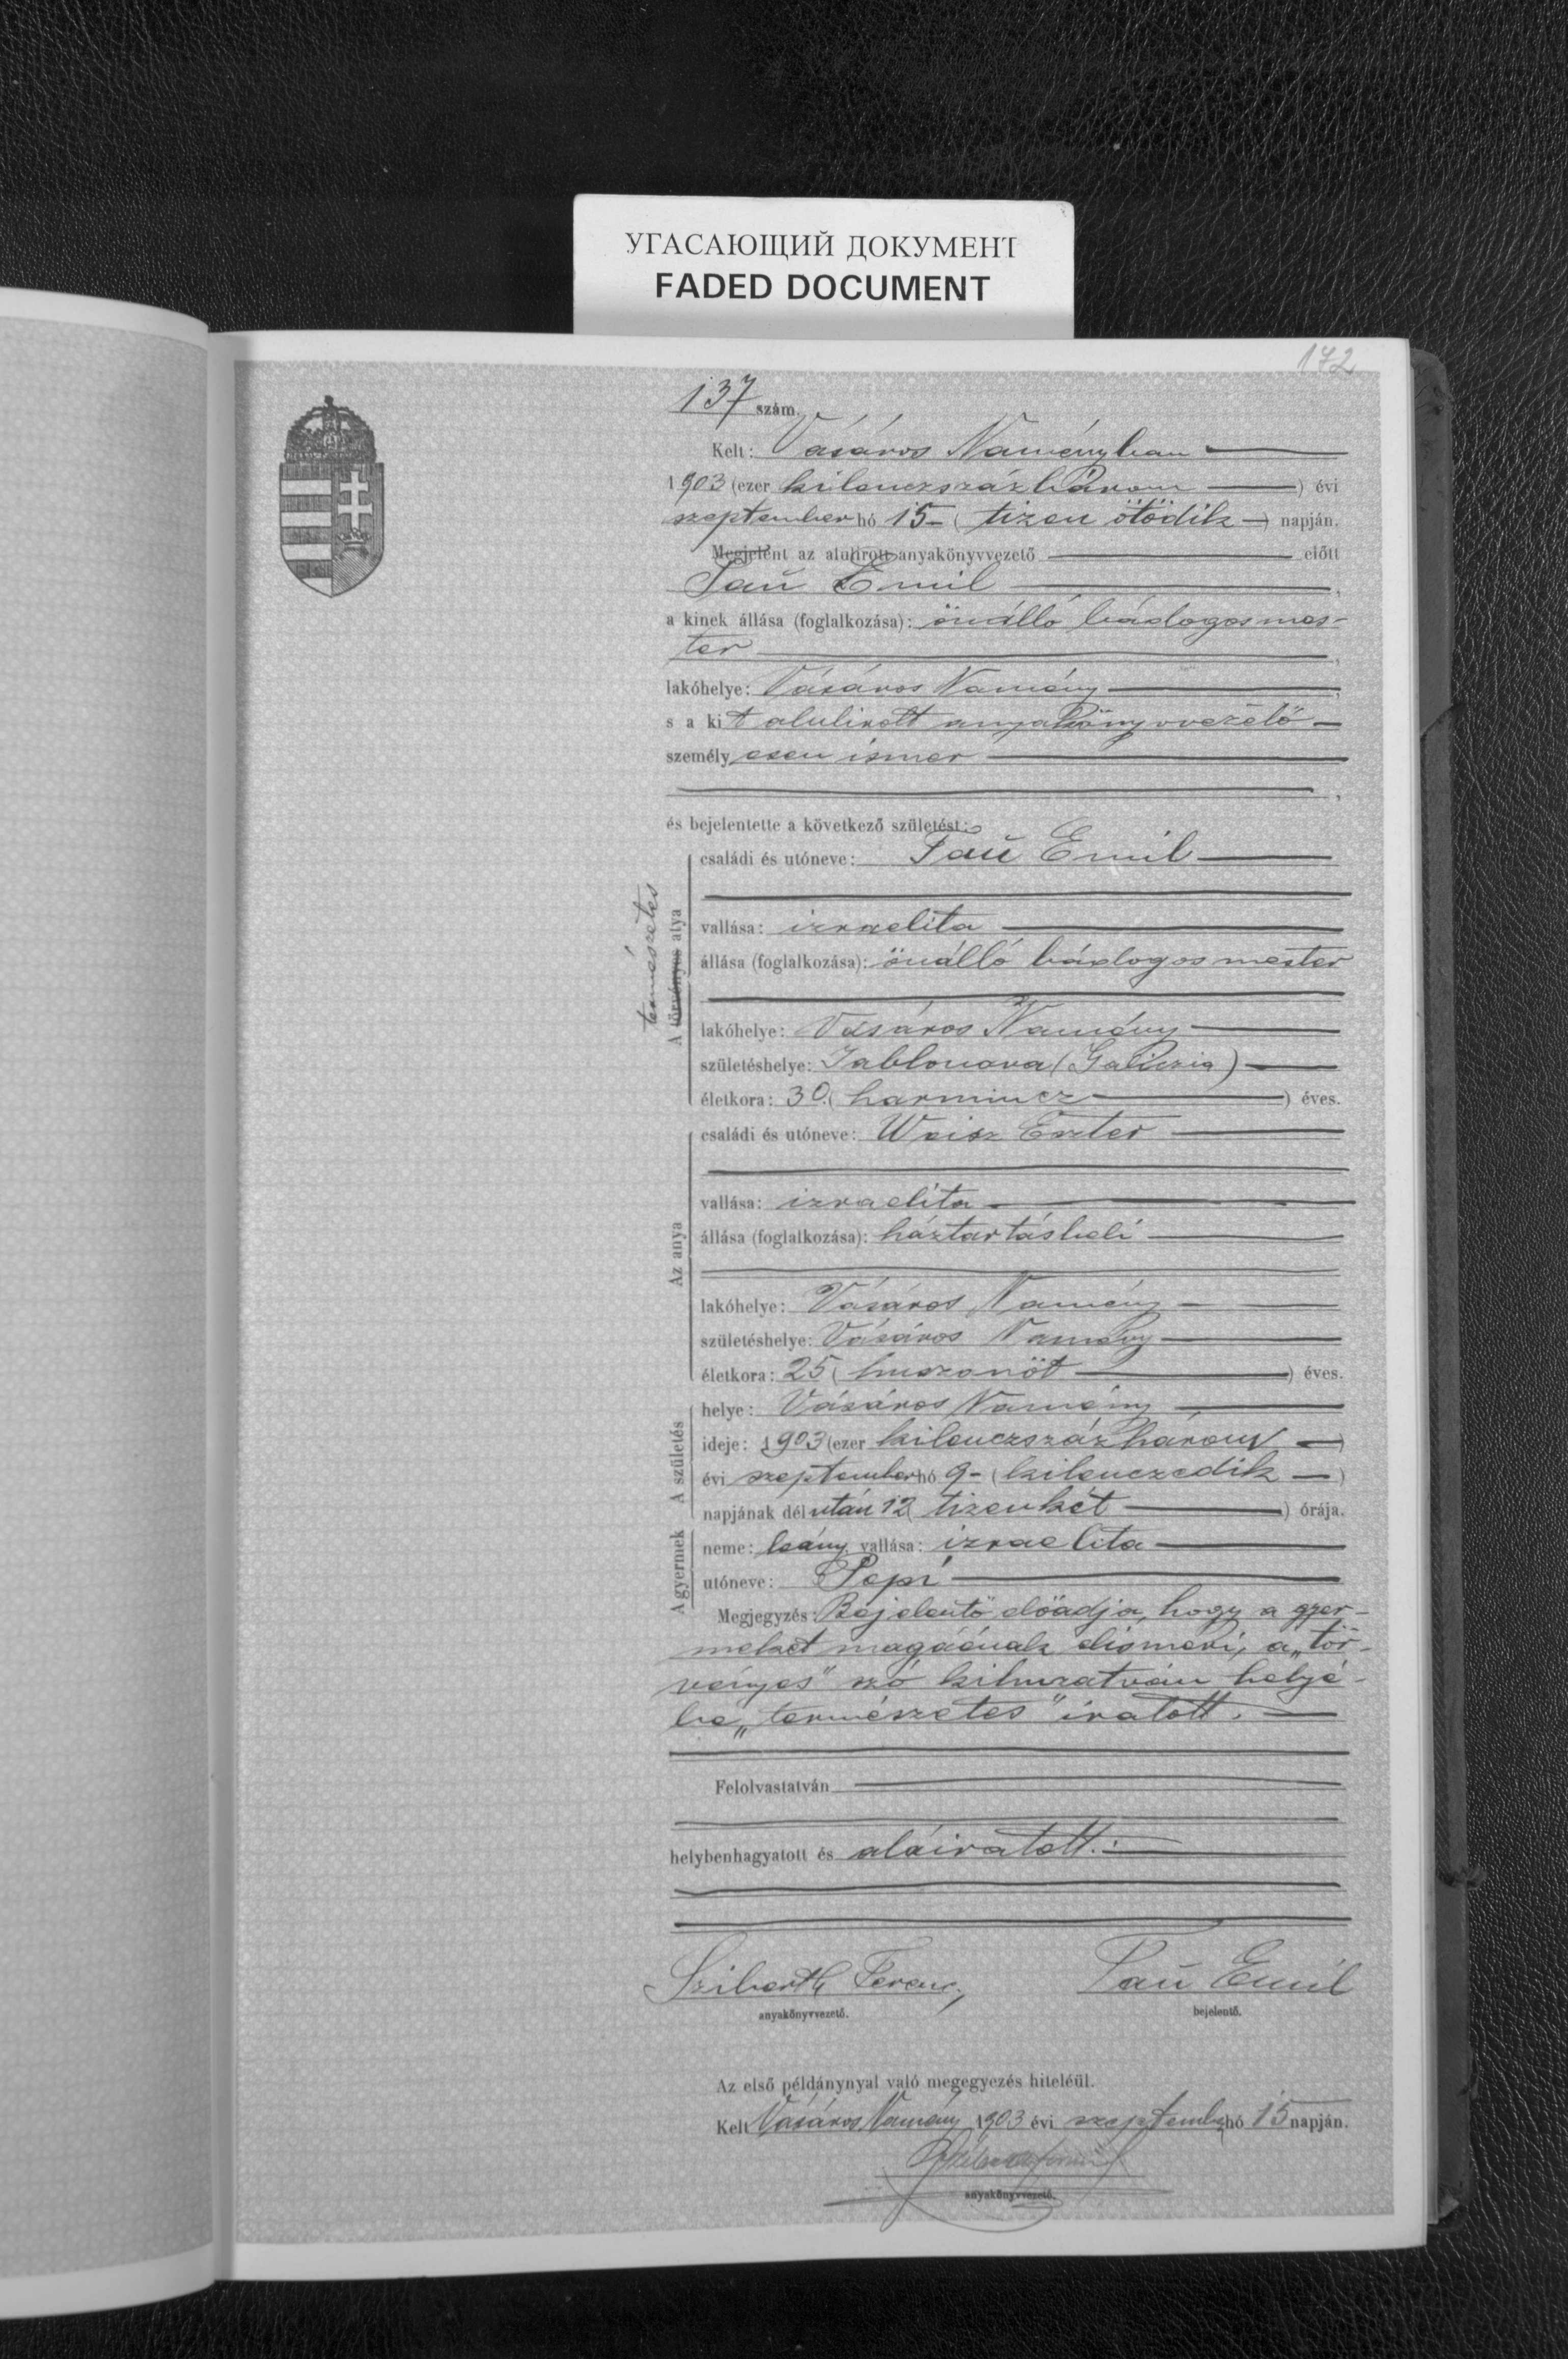 УГАСАЮЩИЙ ДОКУМЕНТ
FADED DOCUMENT
172
137 szám.
Kelt: Vásáros Naményban
1903 (ezer kilenczszázhárom) évi
szeptember hó 15- (tizen ötödik) napján.
Megjelent az alulirott anyakönyvvezető előtt
Tau Emil,
a kinek állása (foglalkozása): önálló bádogosmes-
ter,
lakóhelye: Vásáros Namény,
s a kit alulirott anyakönyvvezető
személyesen ismer
,
és bejelentette a következő születést:
természetes
A törvényes atya
családi és utóneve: Tau Emil
vallása: izraelita
állása (foglalkozása): önálló bádogos mester
lakóhelye: Vásáros Namény
születéshelye: Jablonova (Galiczia)
életkora: 30 (harmincz) éves.
Az anya
családi és utóneve: Weisz Eszter
vallása: izraelita
állása (foglalkozása): háztartásbeli
lakóhelye: Vásáros Namény
születéshelye: Vásáros Namény
életkora: 25 (huszonöt) éves.
A születés
helye: Vásáros Namény
ideje: 1903 (ezer kilenczszázhárom)
évi szeptember hó 9- (kilenczedik)
napjának délután 12 (tizenkét) órája.
A gyermek
neme: leány vallása: izraelita
utóneve: Pepi
Megjegyzés: Bejelentő előadja, hogy a gyer-
meket magáénak elismeri, a „tör-
vényes" szó kihuzatván helyé-
be „természetes" iratott.
Felolvastatván
helybenhagyatott és aláiratott.
Sziberth Ferenc, Tau Emil
anyakönyvvezető. bejelentő.
Az első példánynyal való megegyezés hiteléül.
Kelt Vásáros Namény 1903 évi szeptember hó 15 napján.
anyakönyvvezető.